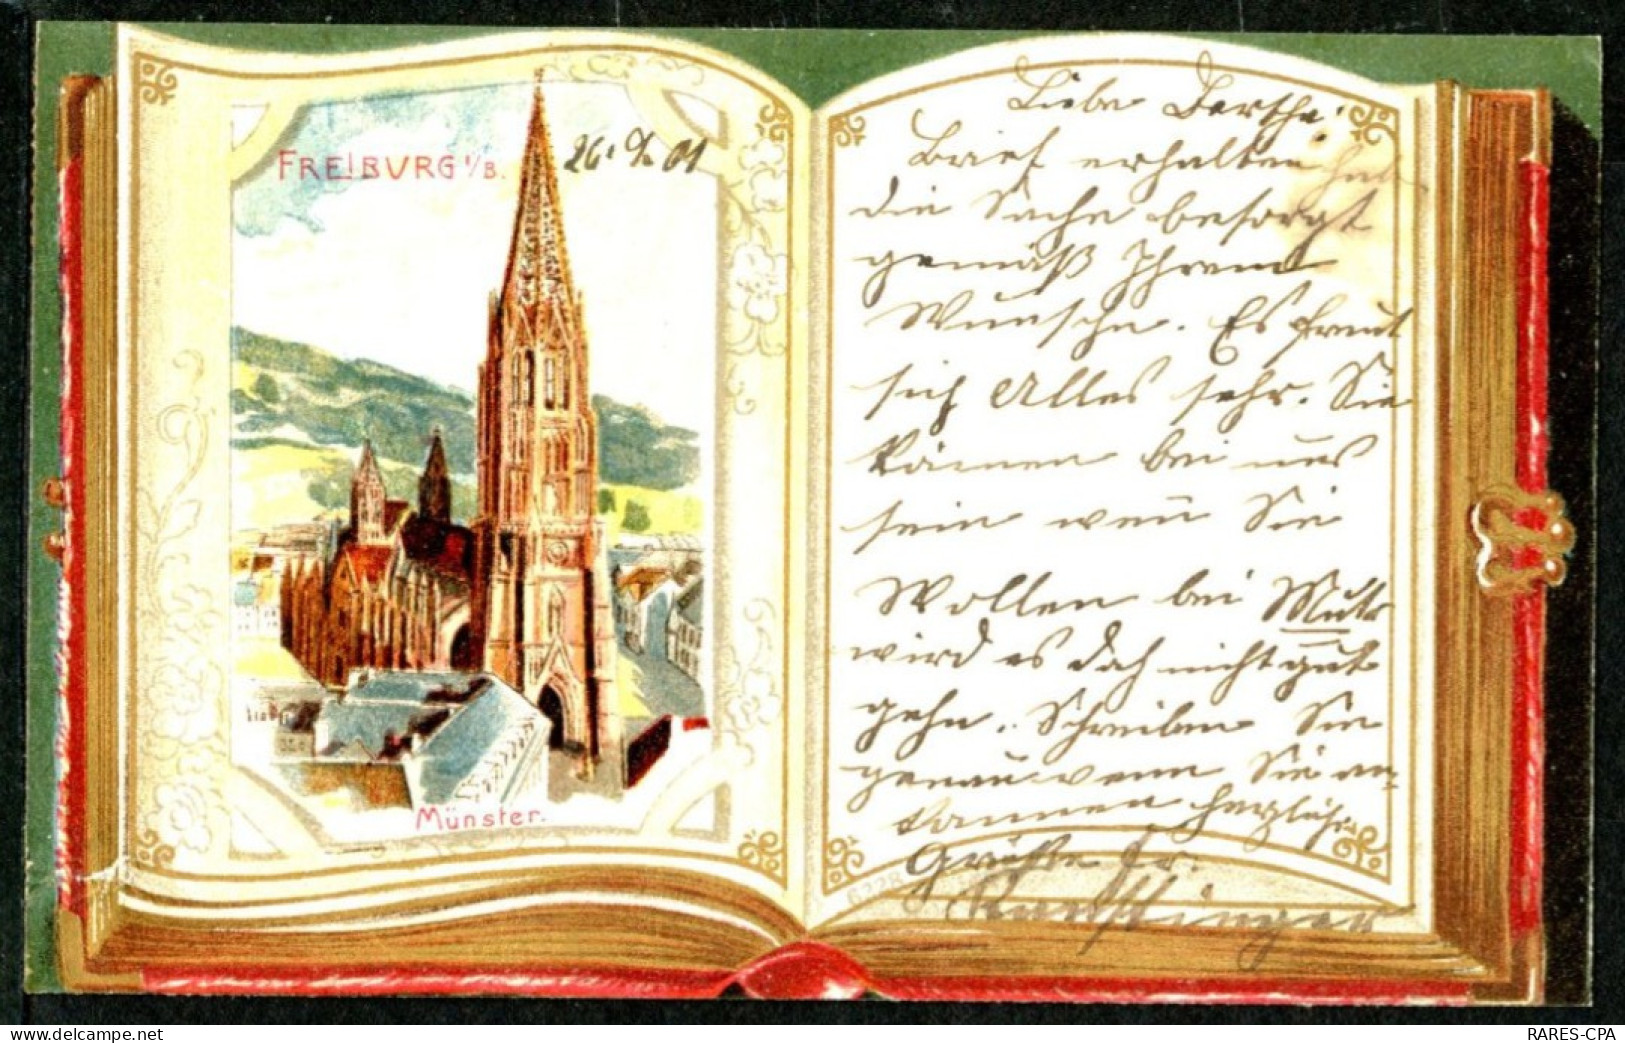 FREIBURG i/B.
26. 9/. 01
Münster.
Liebe Bertha!
Brief erhalten hab
die Sache besorgt
gemäß Ihrem
Wunsche. Es freut
sich Alles sehr. Sie
können bei uns
sein wen̄ Sie
Wollen bei
wird es doch nicht gut
gehn. Schreiben Sie
genau wenn Sie an-
kommen herzliche
Grüße Fr.
6228
RARES-CPA